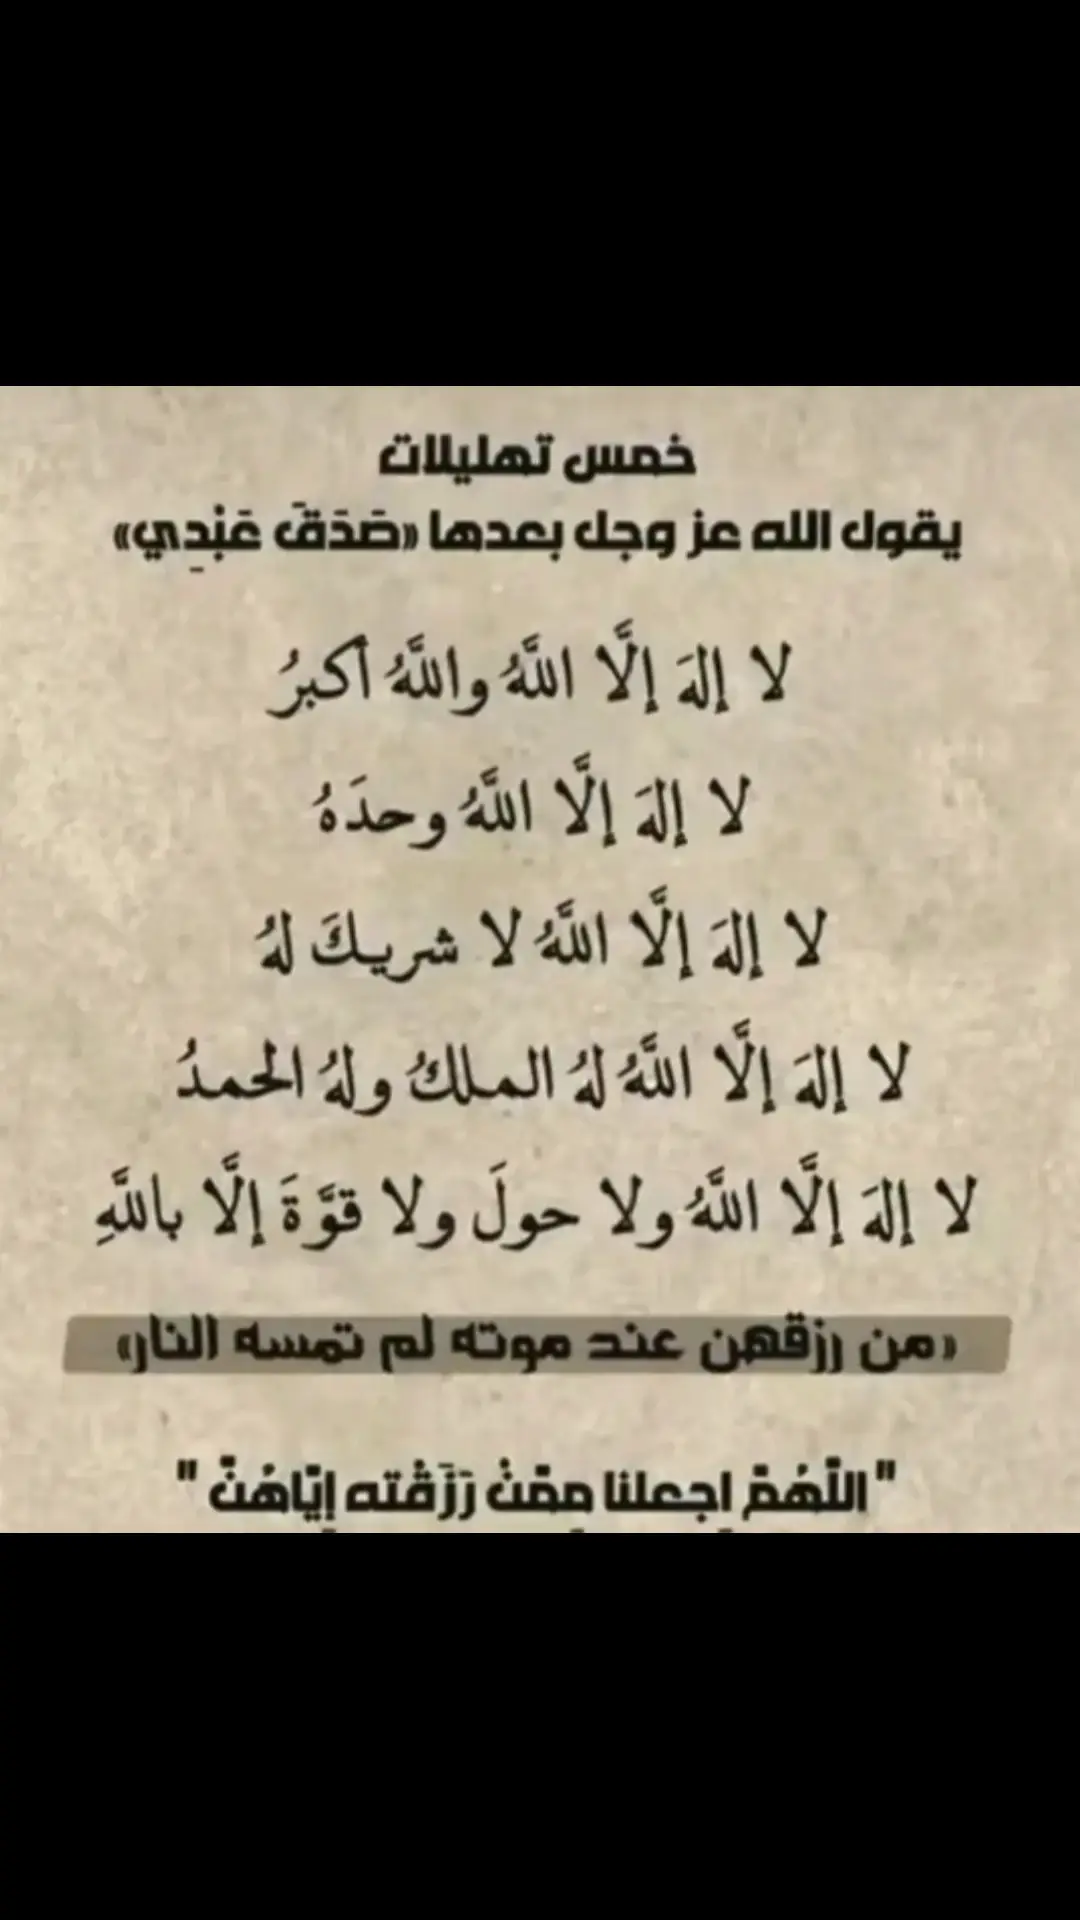 خمس تهليلات
يقول الله عز وجل بعدها «صَدَقَ عَبْدِي»
لا إلهَ إلَّا اللَّهُ واللَّهُ أكبرُ
لا إلهَ إلَّا اللَّهُ وحدَهُ
لا إلهَ إلَّا اللَّهُ لا شريكَ لهُ
لا إلهَ إلَّا اللَّهُ لهُ الملكُ ولهُ الحمدُ
لا إلهَ إلَّا اللَّهُ ولا حولَ ولا قوَّةَ إلَّا باللَّهِ
«من رزقهن عند موته لم تمسه النار»
"اللّهُمّ اجعلنا ممّنْ رَزَقْته إيّاهُنّ"